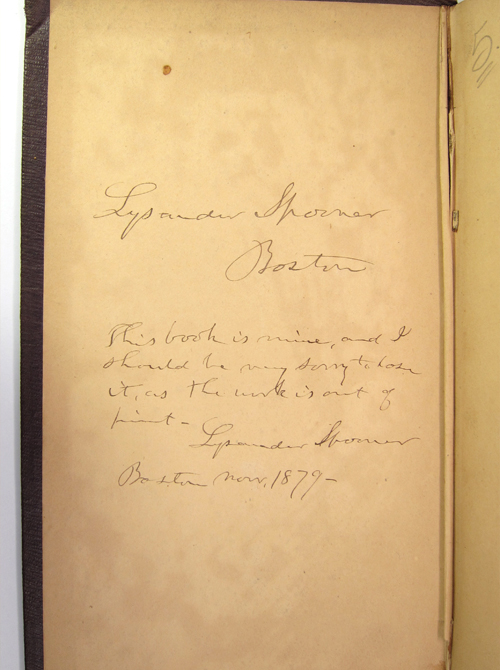 Lysander Spooner
Boston
This book is mine, and I
should be very sorry to lose
it, as the work is out of
print -
Lysander Spooner
Boston Nov. 1879 -
5